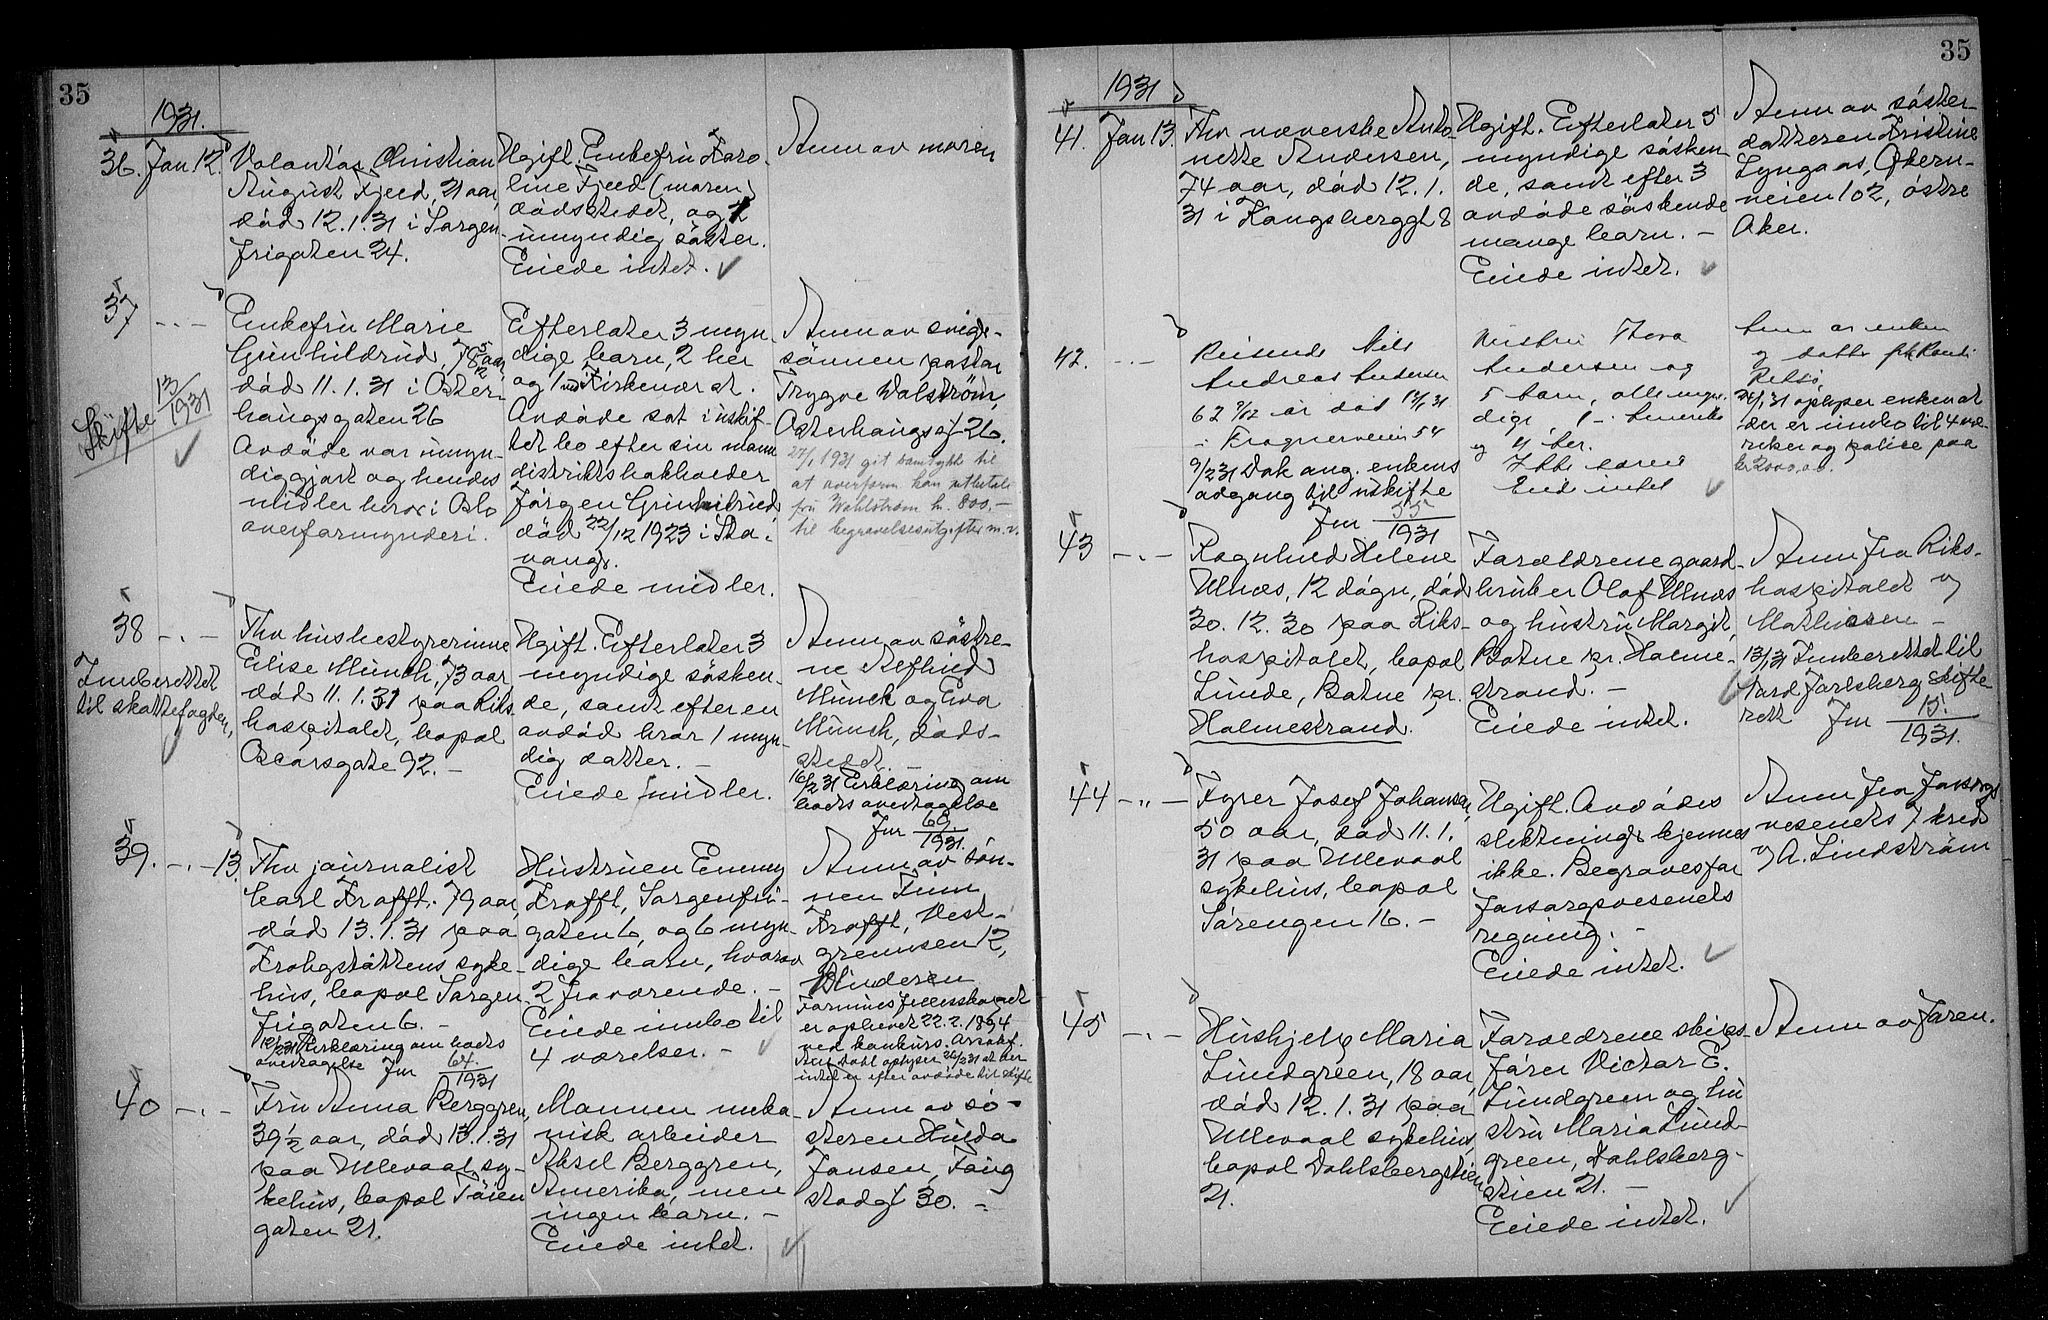 35
1931.
36. Jan 12.
Volontør Christian
August Fjeld, 21 aar,
död 12.1.31 i Sorgen-
frigaten 24.
Ugift. Enkefru Karo-
line Fjeld (moren)
dödsstedet, og 1
umyndig söster.
Eiede intet.
Anm av moren
37 -.-
Skifte 13/1931
Enkefru Marie
Gunhildrud, 78 5/12 aar
död 11.1.31 i Oster-
haugsgaten 26
Avdöde var umyn-
diggjort og hendes
midler beror i Oslo
overformynderi.
Efterlater 3 myn-
dige barn, 2 her
og 1 ved Fiskenær at.
Avdöde sat i uskif-
tet bo efter sin mann
distriktslakholder
Jörgen Gunhildrud
död 22/12 1923 i Sta-
vang.
Eiede midler.
Anm av sviger-
sönnen pastor
Trygve Wolström,
Osterhaugsgt 26.
27/1 1931 git samtykke til
at overform kan utbetale
fru Wahlström kr. 800,-
til begravelsesutgifter m.v.
38 -.-
Innberettet
til skattefogden,
Fhv husbestyrerinne
Elise Münch, 73 aar
död 11.1.31 paa Riks-
hospitalet, bopæl
Oscarsgate 92.-
Ugift. Efterlater 3
myndige sösken-
de, samt efter en
avdöd bror 1 myn-
dig datter.-
Eiede midler.
Anm av söstre-
ne
Münch og Eva
Münch, döds-
stedet.-
16/2 31 Erklæring om
boets overtagelse
Jnr 60/1931.
39. -.- 13.
Fhv journalist
Carl Krafft. 79 aar,
död 13.1.31 paa
Krohgstöttens syke-
hus, bopæl Sorgen-
frigaten 6.-
12/2 31 Erklæring om boets
overtagelse Jnr 64./1931
Hustruen Emmy
Krafft, Sorgenfri-
gaten 6, og 6 myn-
dige barn, hvorav
2 fraværende.-
Eiede innbo til
4 værelser.-
Anm av sön-
nen Finn
Krafft, Vest-
grennsen 12,
Blindern
Formuesfellesskapet
er ophevet 22.2.1894
ved konkurs. Arkitekt
Dahl oplyser 26/2 31 at der
intet er efter avdöde til skifte
40 -.-
Fru Anna Berggren,
39 1/2 aar, död 13.1.31
paa Ullevaal sy-
kehus, bopæl Töien-
gaten 21.
Mannen meka-
nisk arbeider
Aksel Berggren,
Amerika, men
ingen barn.-
Eiede intet.
Anm av sö-
steren Hulda
Jansen, Tøng
stadgt 30.-
35
1931
41. Jan 13.
Fhv væverske Anto-
nette Andersen,
74 aar, död 12.1.
31 i Kongsberggt 8
Ugift. Efterlater 5
myndige sösken-
de, samt efter 3
avdöde söskende
mange barn.-
Eiede intet.
Anm av söster-
datteren Kristine
Lyngaas, Økern-
veien 102, östre
Aker.
42. -.-
Reisende Nils
Andreas Andersen
62 9/12 år död 13/1 31
i Frognerveien 54
9/2 31 Dok ang. enkens
adgang til uskifte
Jnr 55/1931
Hustru Thora
Andersen og
5 barn, alle myn-
dige, 1 i Amerika
og 4 her.
Ikke særeie
Eied intet
Anm av enken
og datter frk Randi
24/1 31 oplyser enken at
der er innbo til 4 væ-
relser og polise paa
kr 2000,00.
43 -.-
Ragnhild Helene
Ulnæs, 12 dögn, död
30.12.30 paa Riks-
hospitalet, bopæl
Linde, Botne pr.
Holmestrand.
Forældrene gaard-
bruker Olaf Ulnæs
og hustru Margit,
Botne pr. Holme-
strand.-
Eiede intet.
Anm fra Riks-
hospitalet og
Mathissen-
13/1 31 Innberettet til
Nord Jarlsberg skifte-
rett Jnr 15./1931.
44 -„-
Fyrer Josef Johansen,
50 aar, död 11.1.
31 paa Ullevaal
sykehus, bopæl
Sörengen 16.-
Ugift. Avdödes
slektninger kjennes
ikke. Begraves for
forsorgsvesenets
regning.-
Eiede intet.
Anm fra forsorgs-
vesenets 7 kreds
og A. Lindström
45 -.-
Hushjelp Maria
Lundgreen, 18 aar,
död 12.1.31 paa
Ullevaal sykehus,
bopæl Dahlsbergstien
21.
Forældrene skips-
förer Victor E.
Lundgreen og hu-
stru Maria Lund-
green, Dahlsberg-
stien 21.-
Eiede intet.
Anm av faren.